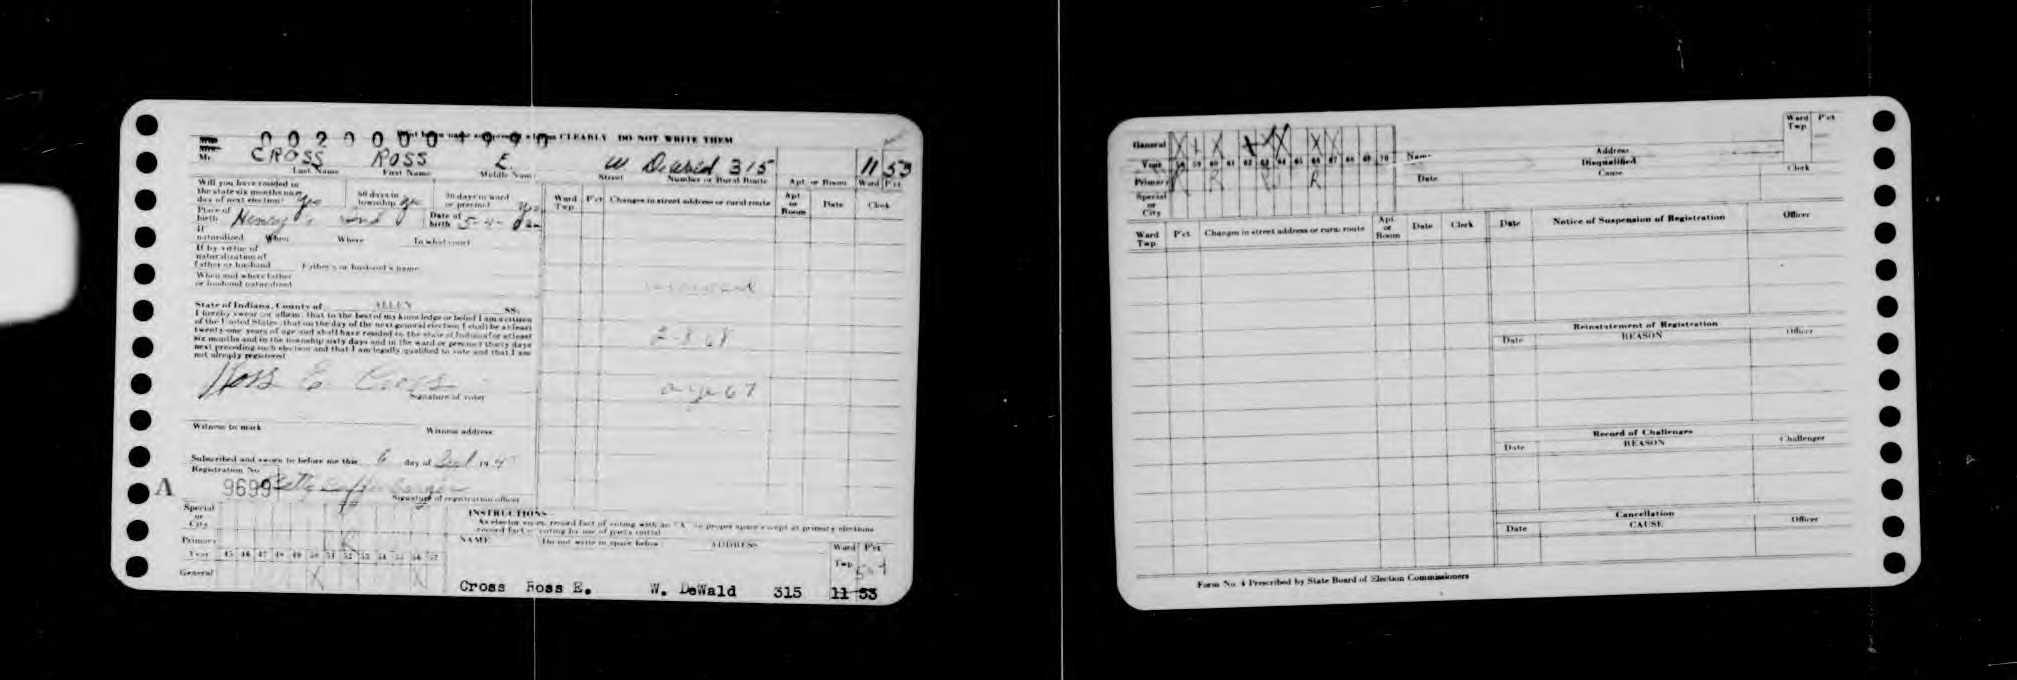 0020004990
CLEARLY DO NOT WRITE THEM
Mr. CROSS ROSS E. W Dewald 315 11 53
Last Name First Name Middle Name Street Number or Rural Route Apt. or Room Ward P'ct
Will you have resided in
the state six months on
day of next election? Yes 60 days in township 30 days in ward or precinct Yes
Place of birth Henry Date of birth 5-4-
If naturalized When Where In what court
If by virtue of
naturalization of
Father or husband Father's or husband's name
When and where father
or husband naturalized
Ward Twp. P'ct Changes in street address or rural route Apt. or Room Date Clerk
State of Indiana, County of ALLEN SS:
I hereby swear (or affirm) that to the best of my knowledge or belief I am a citizen
of the United States, that on the day of the next general election I shall be at least
twenty-one years of age and shall have resided in the state of Indiana for at least
six months and in the township sixty days and in the ward or precinct thirty days
next preceding such election and that I am legally qualified to vote and that I am
not already registered
2-8-68
age 67
Ross E. Cross
Signature of voter
Witness to mark Witness address
Subscribed and sworn to before me this 6 day of 194
Registration No.
A 9699 Betty
Signature of registration officer
Special
or
City
Primary R R
Year 45 46 47 48 49 50 51 52 53 54 55 56 57
General X X
INSTRUCTIONS
As elector votes, record fact of voting with an "X" in proper space except at primary elections
record fact of voting by use of party initial
NAME Do not write in space below ADDRESS Ward P'ct
Twp.
Cross Ross E. W. DeWald 315 11 53
General X X X X X X X
Year 58 59 60 61 62 63 64 65 66 67 68 69 70
Primary R R R R R
Special
or
City
Name Address
Disqualified
Date Cause Clerk
Ward Twp. P'ct
Ward Twp. P'ct Changes in street address or rural route Apt. or Room Date Clerk
Date Notice of Suspension of Registration Officer
Reinstatement of Registration
Date REASON Officer
Record of Challenges
Date REASON Challenger
Cancellation
Date CAUSE Officer
Form No. 4 Prescribed by State Board of Election Commissioners